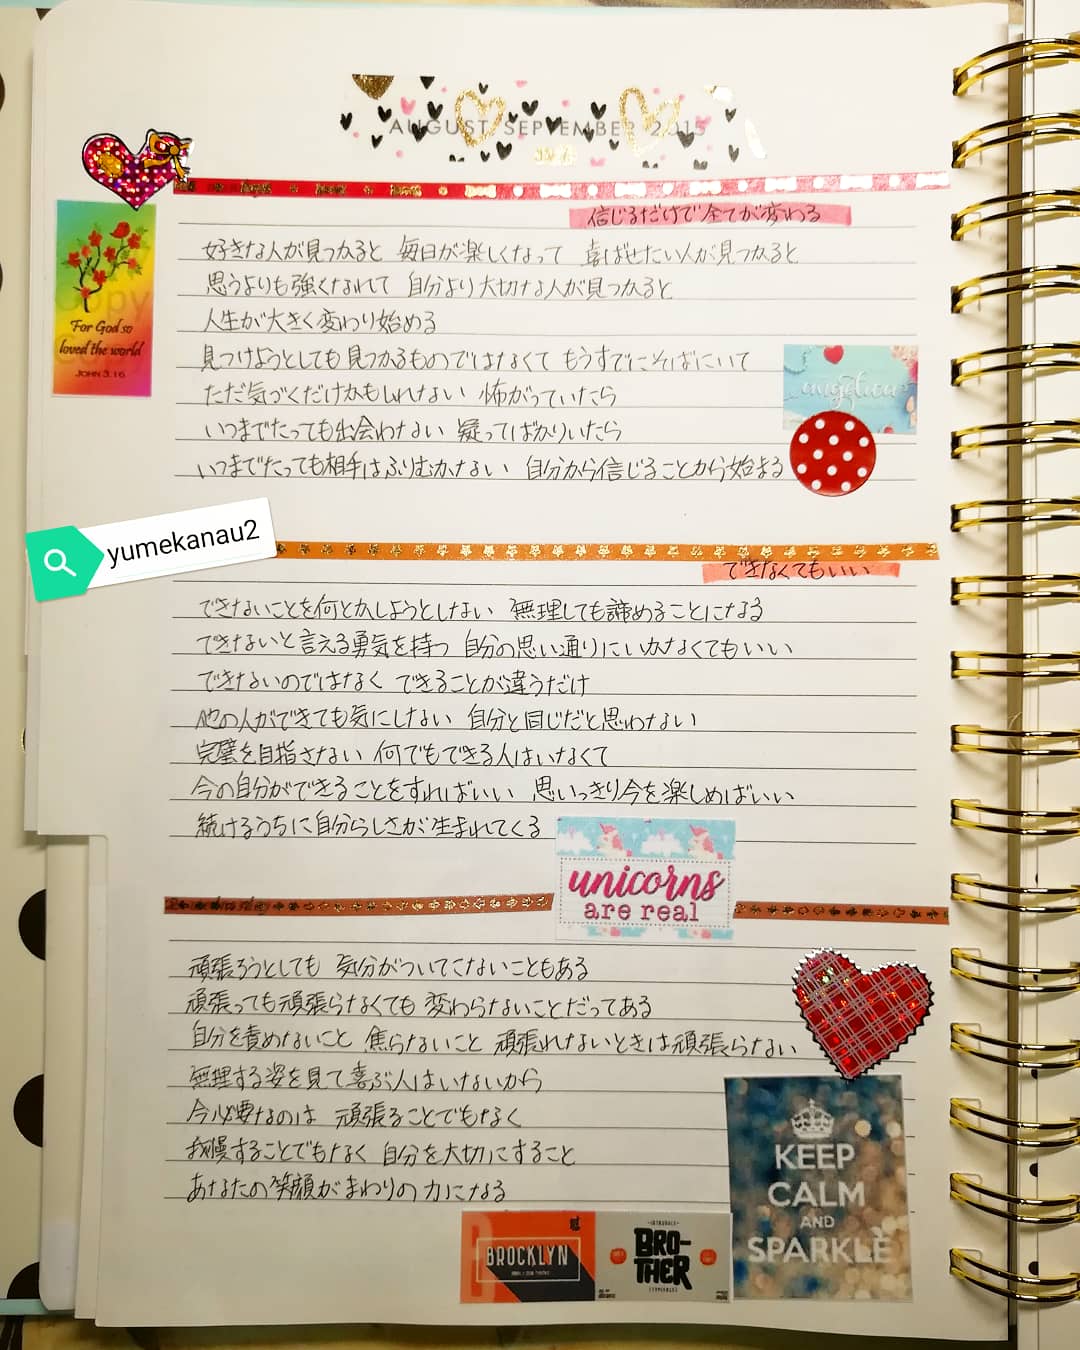 AUGUST SEPTEMBER 2015
信じるだけで全てが変わる
好きな人が見つかると 毎日が楽しくなって 喜ばせたい人が見つかると
思うよりも強くなれて 自分より大切な人が見つかると
人生が大きく変わり始める
見つけようとしても見つかるものではなくて もうすでにそばにいて
ただ気づくだけかもしれない 怖がっていたら
いつまでたっても出会わない 疑ってばかりいたら
いつまでたっても相手はふりむかない 自分から信じることから始まる
For God so
loved the world
JOHN 3:16
yumekanau2
できなくてもいい
できないことを何とかしようとしない 無理しても諦めることになる
できないと言える勇気を持つ 自分の思い通りにいかなくてもいい
できないのではなく できることが違うだけ
他の人ができても気にしない 自分と同じだと思わない
完璧を目指さない 何でもできる人はいなくて
今の自分ができることをすればいい 思いっきり今を楽しめばいい
続けるうちに自分らしさが生まれてくる
unicorns
are real
頑張ろうとしても 気分がついてこないこともある
頑張っても頑張らなくても 変わらないことだってある
自分を責めないこと 焦らないこと 頑張れないときは頑張らない
無理する姿を見て喜ぶ人はいないから
今必要なのは 頑張ることでもなく
我慢することでもなく 自分を大切にすること
あなたの笑顔がまわりの力になる
KEEP
CALM
AND
SPARKLE
BROCKLYN
BRO-
THER